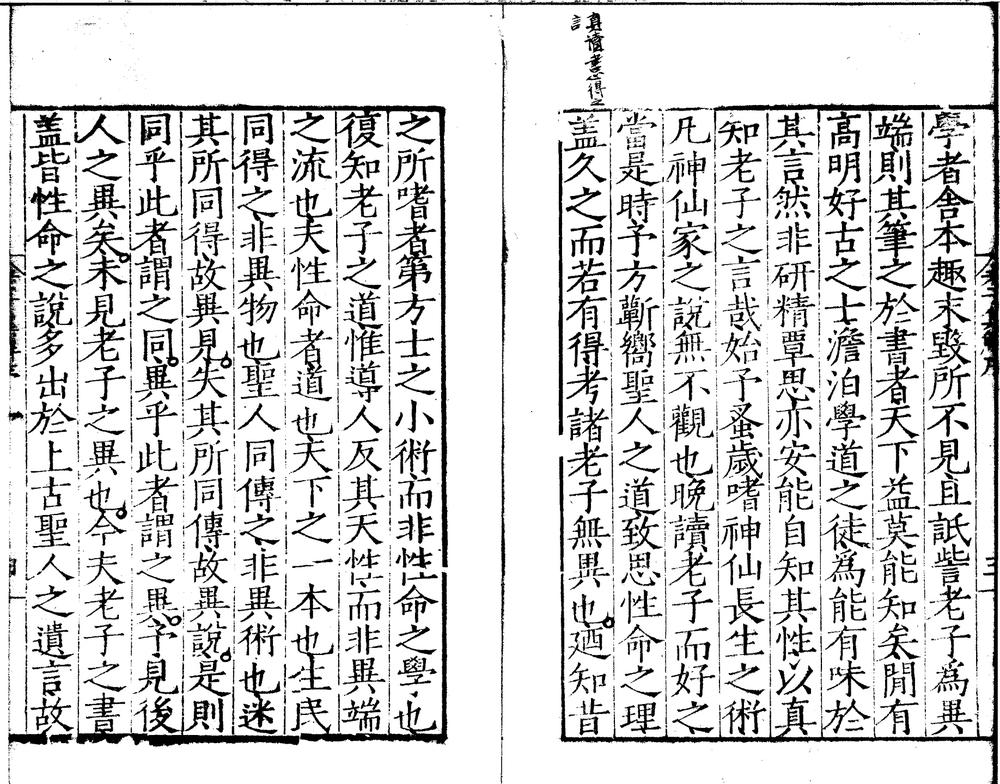 真讀書心得之
言
學者舍本趣末毀所不見且詆訾老子為異
端則其筆之於書者天下益莫能知矣閒有
高明好古之士澹泊學道之徒為能有味於
其言然非研精覃思亦安能自知其性以真
知老子之言哉始予蚤歲嗜神仙長生之術
凡神仙家之說無不觀也晚讀老子而好之
當是時予方蘄嚮聖人之道致思性命之理
盖久之而若有得考諸老子無異也廼知昔
之所嗜者第方士之小術而非性命之學也
復知老子之道惟導人反其天性而非異端
之流也夫性命者道也天下之一本也生民
同得之非異物也聖人同傳之非異術也迷
其所同得故異見失其所同傳故異說是則
同乎此者謂之同異乎此者謂之異予見後
人之異矣未見老子之異也今夫老子之書
盖皆性命之說多出於上古聖人之遺言故